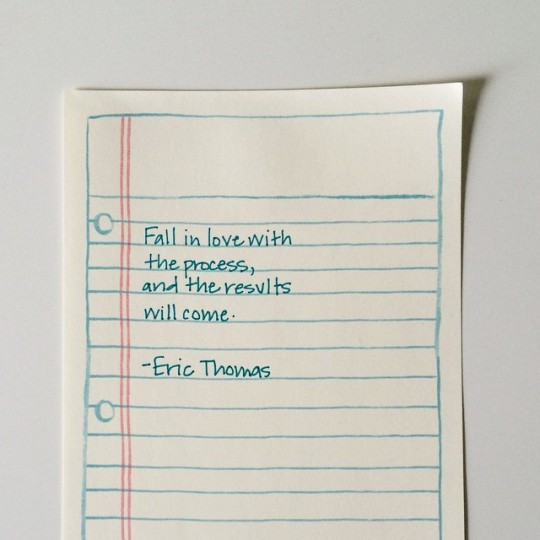 Fall in love with
the process,
and the results
will come.
-Eric Thomas